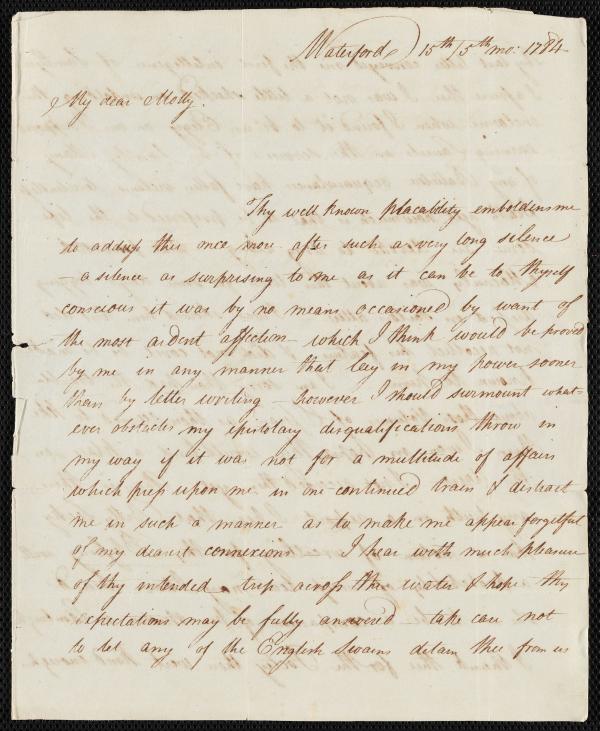 Waterford 15th/5th mo: 1784
My dear Molly.
Thy well known placability emboldens me
to address thee once more after such a very long silence
- a silence as surprising to me as it can be to thyself
conscious it was by no means occasioned by want of
the most ardent affection - which I think would be proved
by me in any manner that lay in my power sooner
than by letter writing - however I should surmount what-
ever obstacles my epistolary disqualifications throw in
my way if it was not for a multitude of affairs
which press upon me in one continued train & distract
me in such a manner as to make me appear forgetful
of my dearest connexions I hear with much pleasure
of thy intended trip across the water & hope thy
expectations may be fully answered take care not
to let any of the English Swains detain thee from us